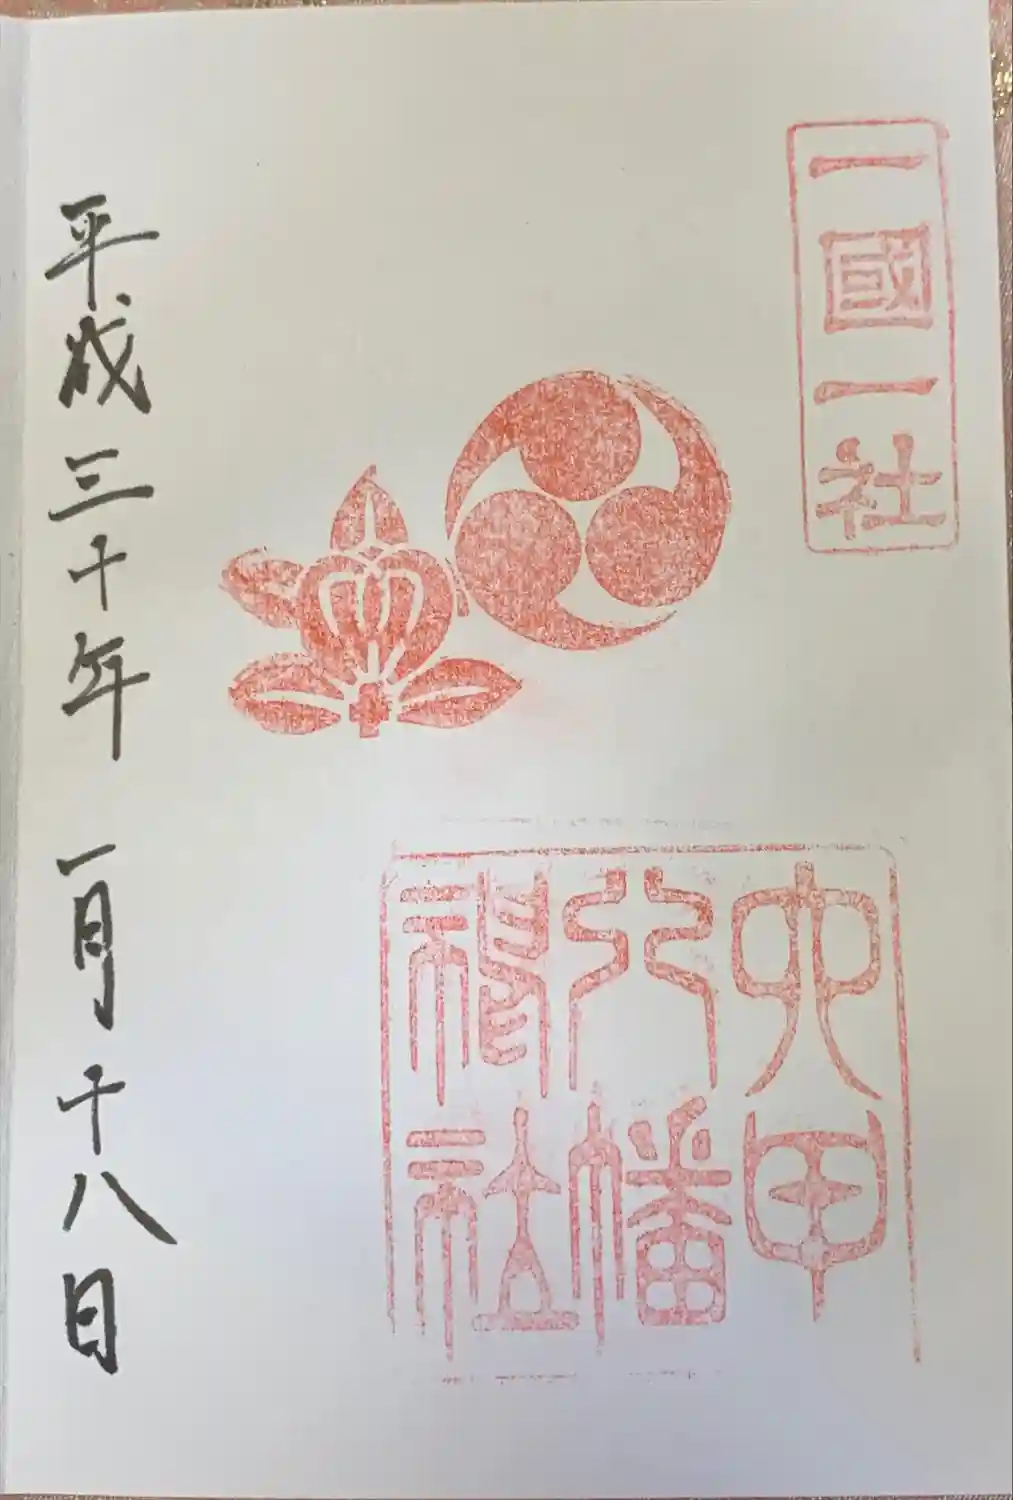 一國一社
六甲
八幡
神社
平成三十年 一月十八日